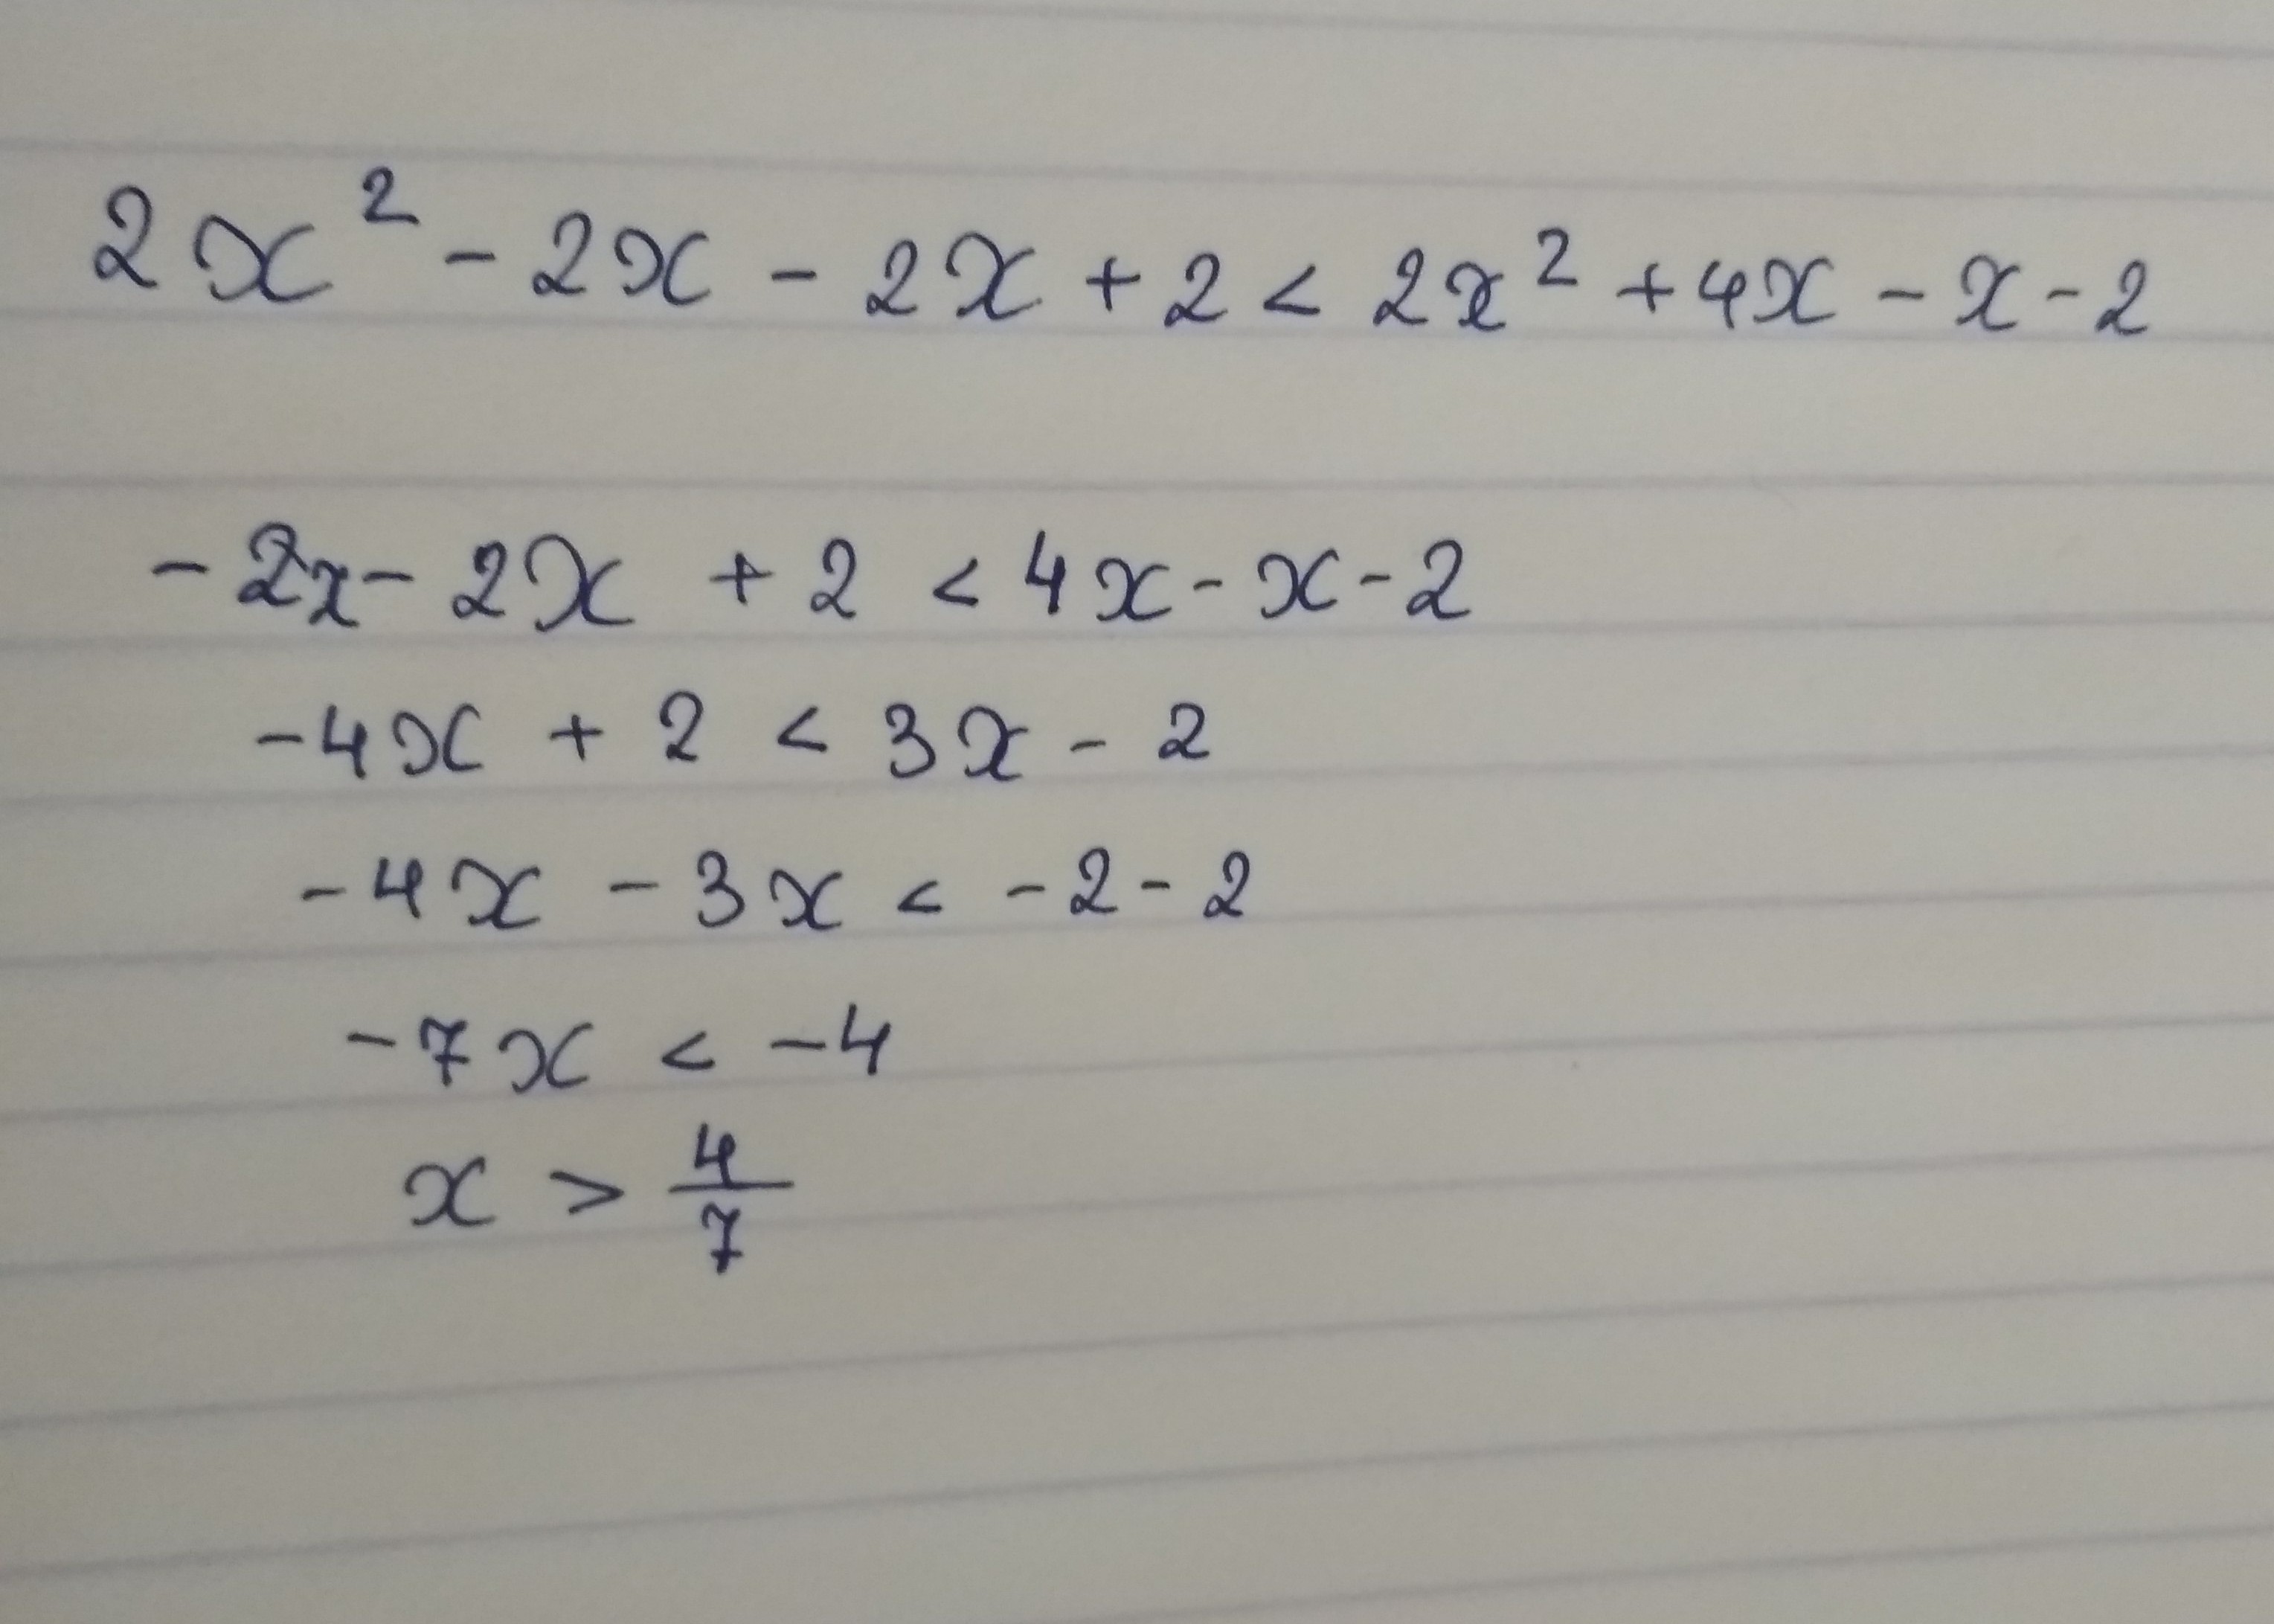 2x² - 2x - 2x + 2 < 2x² + 4x - x - 2
- 2x - 2x + 2 < 4x - x - 2
- 4x + 2 < 3x - 2
- 4x - 3x < - 2 - 2
- 7x < - 4
x > 4/7